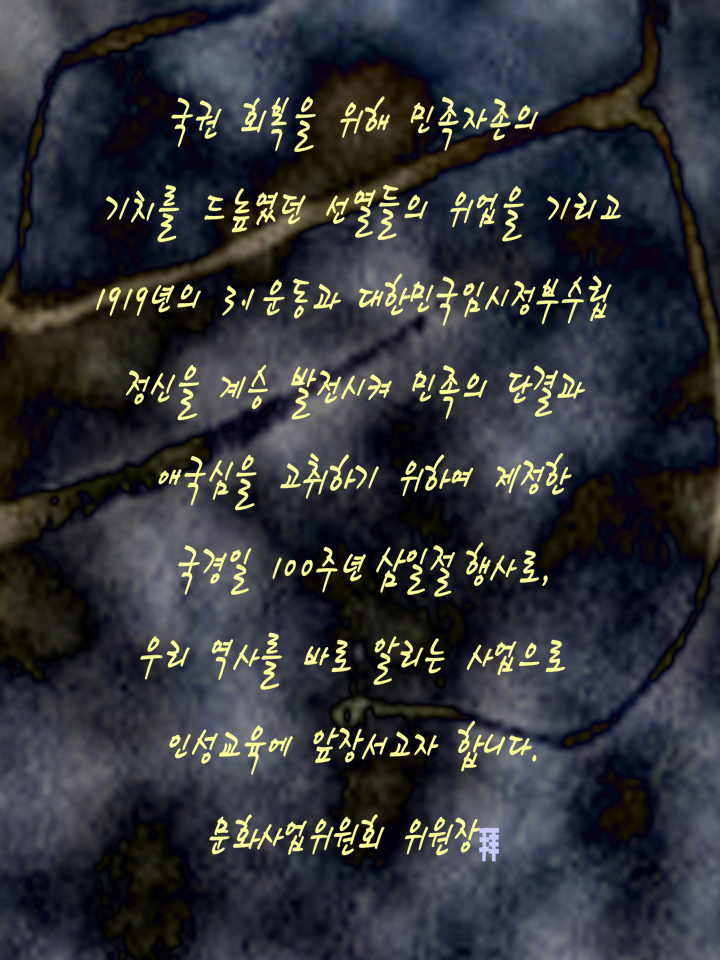 국권 회획을 위해 민족자존의
기치를 드높였던 선열들의 위업을 기리고
1919년의 3·1 운동과 대한민국임시정부수립
정신을 계승 발전시켜 민족의 단결과
애국심을 고취하기 위하여 제정한
국경일 100주년 삼일절 행사로,
우리 역사를 바로 알리는 사업으로
인성교육에 앞장서고자 합니다.
문화사업위원회 위원장拜